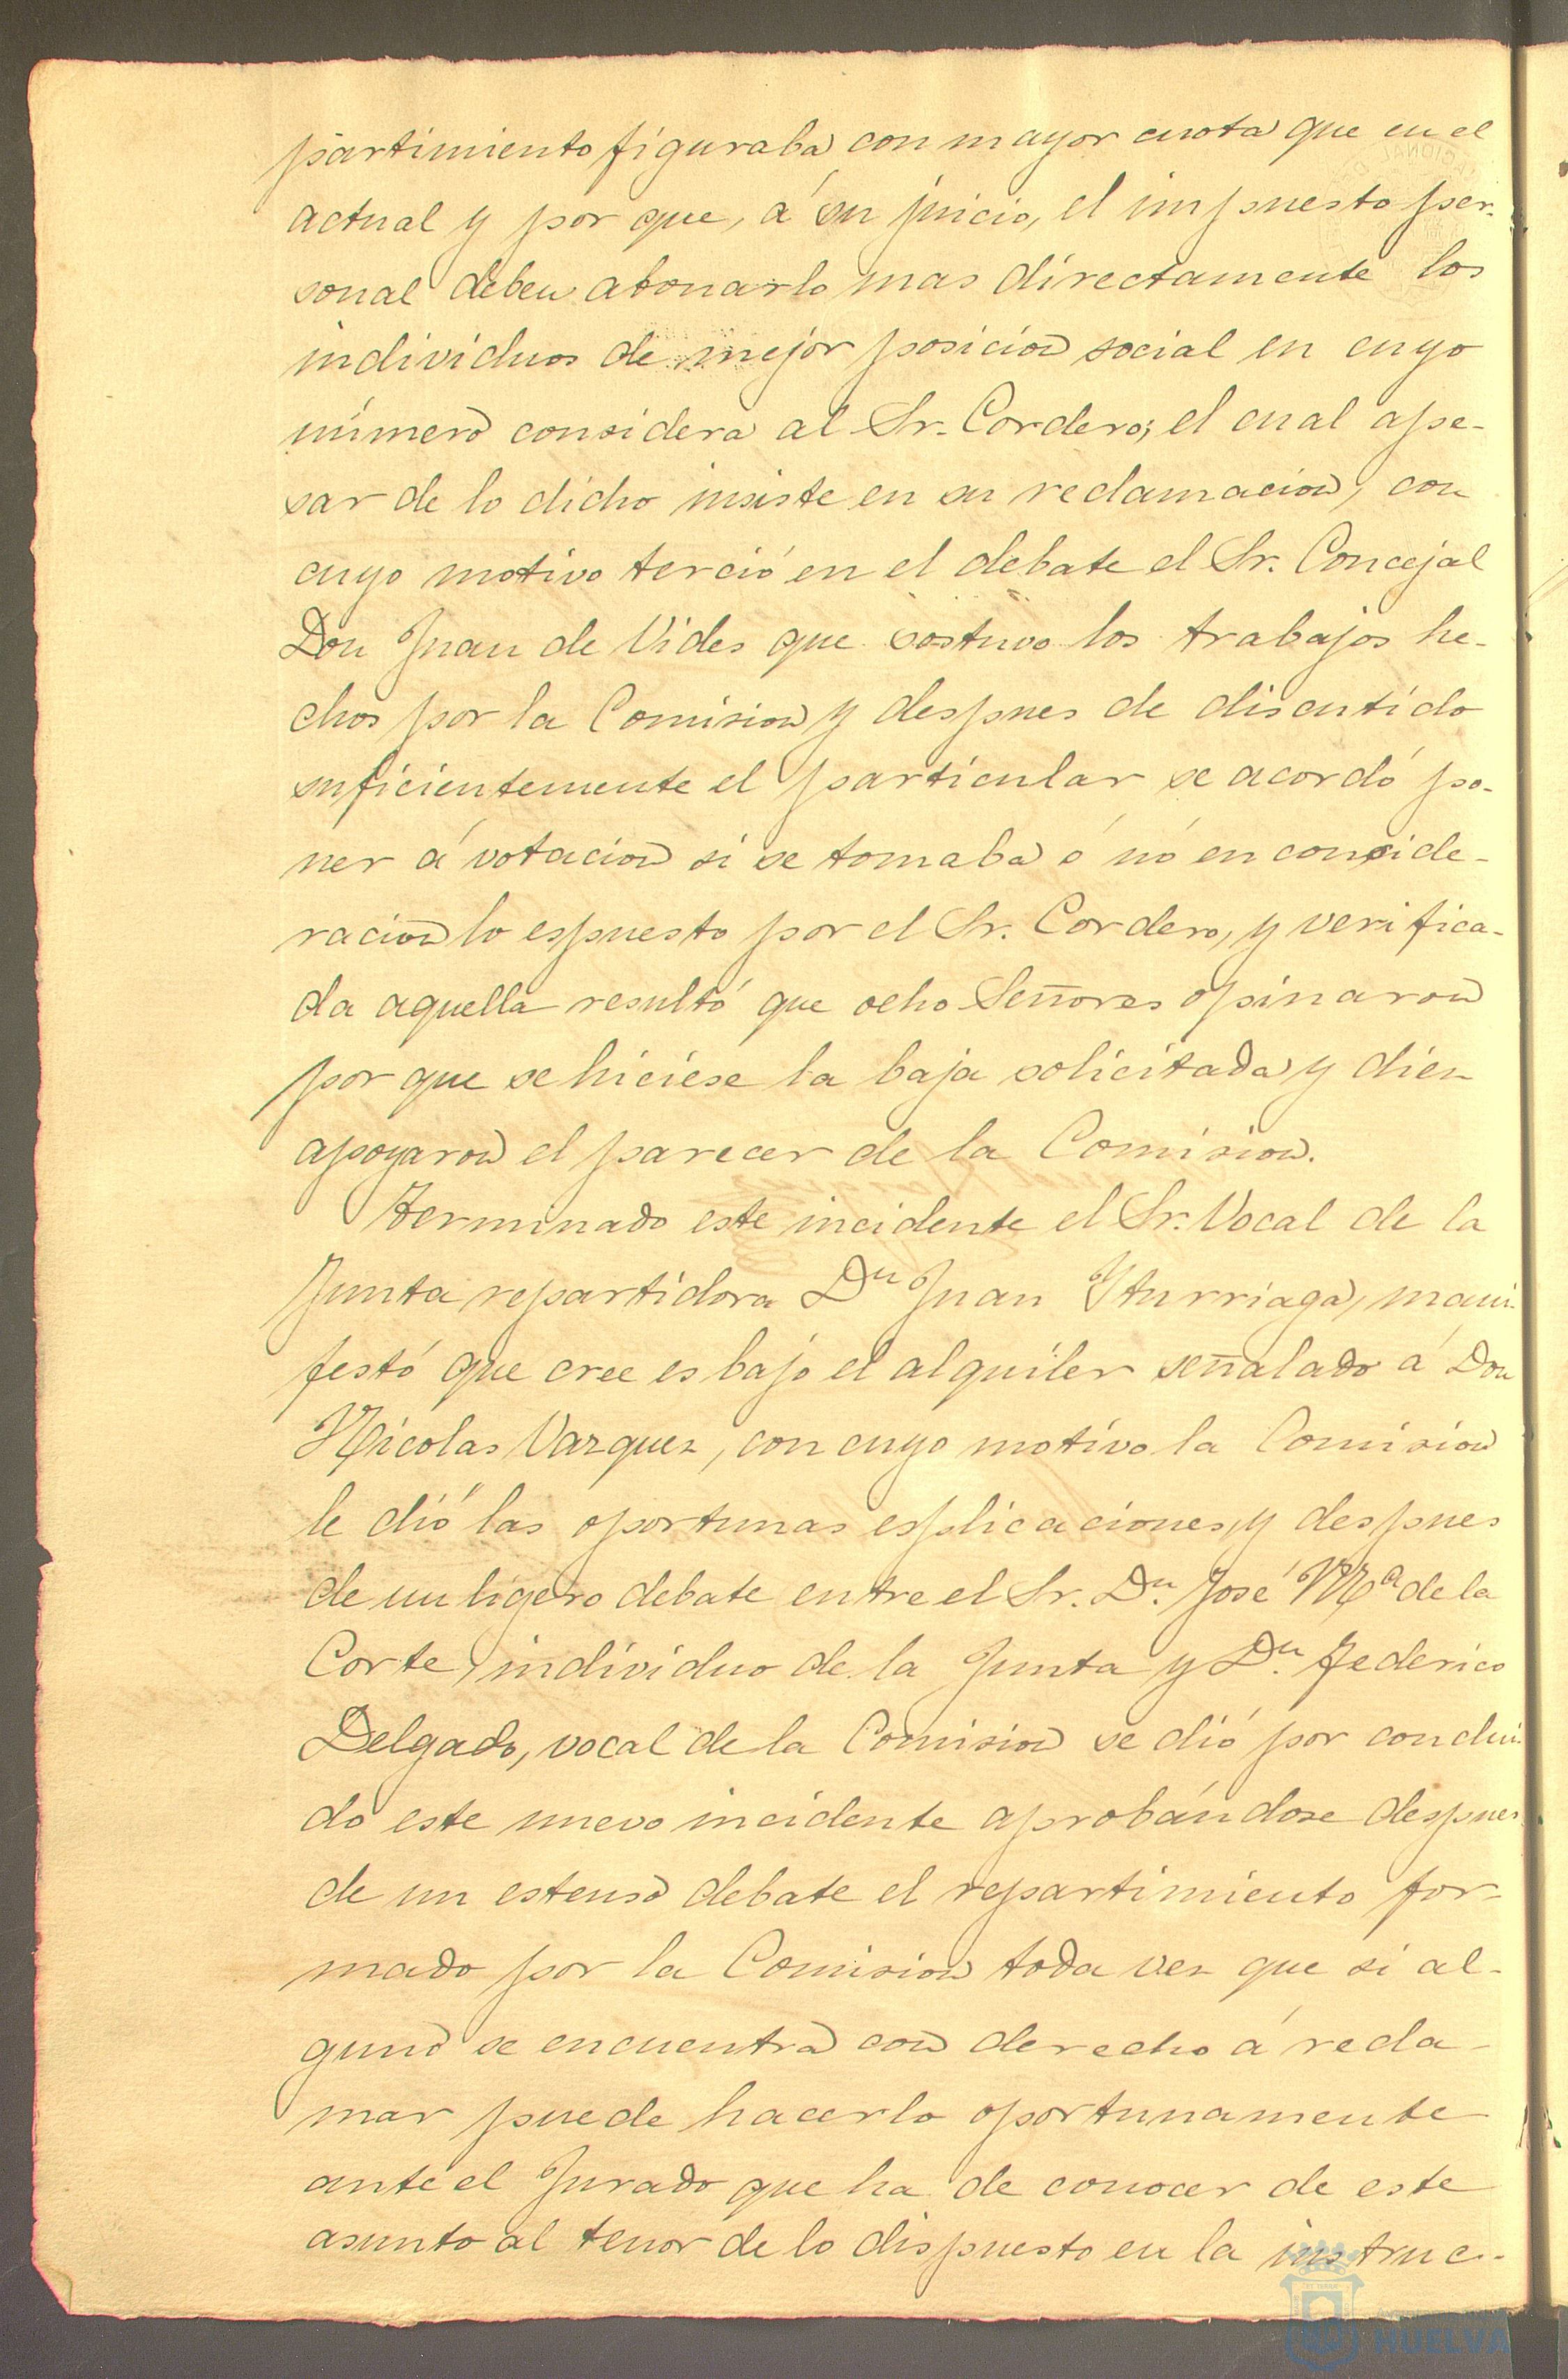 partimiento figuraba con mayor cuota que en el
actual y por que, á su juicio, el impuesto per-
sonal deben abonarlo mas directamente los
individuos de mejor posicion social en cuyo
número considera al Sr. Cordero; el cual ape-
sar de lo dicho insiste en su reclamacion, con
cuyo motivo terció en el debate el Sr. Concejal
Don Juan de Vides que sostuvo los trabajos he-
chos por la Comision y despues de discutido
suficientemente el particular se acordó po-
ner á votacion si se tomaba ó nó en conside-
racion lo espuesto por el Sr. Cordero, y verifica-
da aquella resultó que ocho Señores opinaron
por que se hiciese la baja solicitada y diez
apoyaron el parecer de la Comision.
Terminado este incidente el Sr. Vocal de la
Junta repartidora Dn Juan Yturriaga, mani-
festó que cree es bajo el alquiler señalado á Don
Nicolas Vazquez, con cuyo motivo la Comision
le dió las oportunas esplicaciones, y despues
de un ligero debate entre el Sr. Dn. José Mª de la
Corte, individuo de la Junta y Dn. Federico
Delgado, vocal de la Comision se dió por conclui-
do este nuevo incidente aprobándose despues
de un estenso debate el repartimiento for-
mado por la Comision toda vez que si al-
guno se encuentra con derecho á recla-
mar puede hacerlo oportunamente
ante el Jurado que ha de conocer de este
asunto al tenor de lo dispuesto en la instruc-
HUELVA